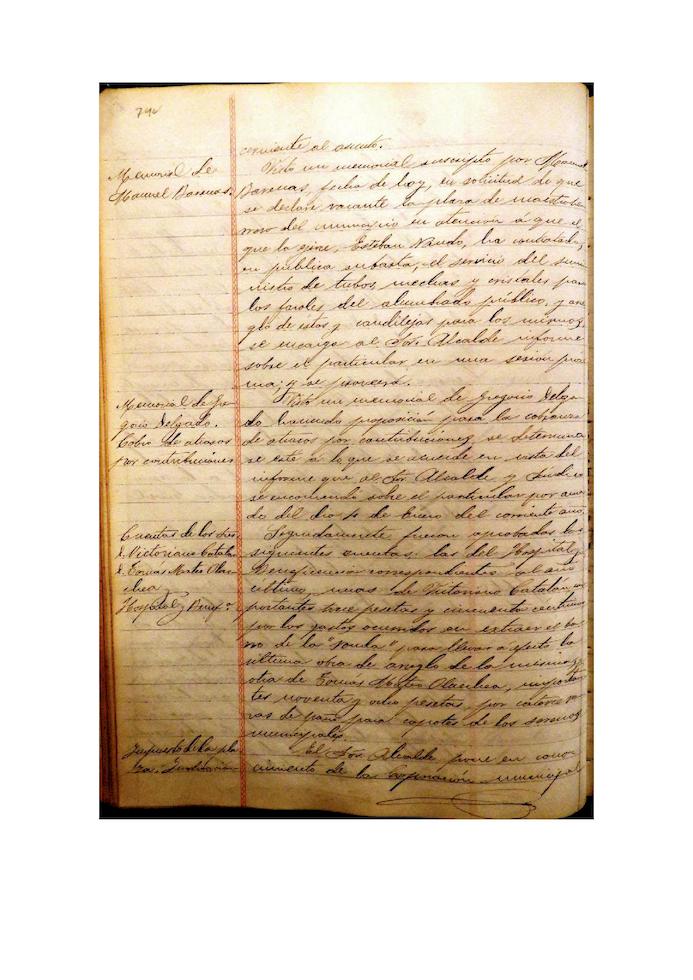 corriente al asunto.
Memorial de
Manuel Barenas.
Visto un memorial suscripto por Manuel
Barenas, fecha de hoy, en solicitud de que
se declare vacante la plaza de maestro
del municipio en atención á que el
que la ejerce, Esteban Nando, ha contratado,
en pública subasta, el servicio del sumi
nistro de tubos, mechas y cristales para
los faroles del alumbrado público, y arre
glo de estos y candilejas para los mismos,
se encarga al Sor. Alcalde informe
sobre el particular en una sesión próxi
ma; y se proveerá.
Memorial de Gre
gorio Delgado.
Cobro de atrasos
por contribuciones
Visto un memorial de Gregorio Delga
do haciendo proposición para la cobranza
de atrasos por contribuciones, se determina
se esté a lo que se acuerde en vista del
informe que al Sor. Alcalde y Síndico
se encomendó sobre el particular por acuer
do del día 4 de Enero del corriente año.
Cuentas de los Sres
D. Victoriano Catalán
D. Tomás Mateo Olan
chea
Hospital y Benefa.
Seguidamente fueron aprobadas las
siguientes cuentas: las del Hospital y
Beneficencia correspondientes al año
último, unas de Victoriano Catalán im
portantes trece pesetas y cincuenta céntimos
por los gastos ocurridos en extraer el ba
rro de la
para llevar a efecto la
última obra de arreglo de la misma y
otra de Tomás Mateo Olanchea, importan
tes noventa y ocho pesetas, por catorce va
ras de paño para capotes de los serenos
municipales.
Impuesto de la pla
za.
El Sor. Alcalde pone en cono
cimiento de la Corporación municipal